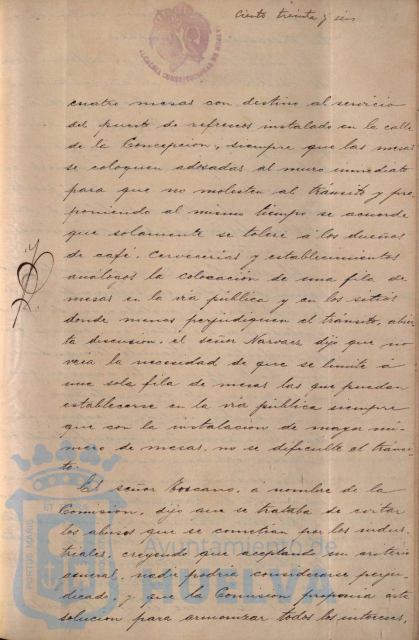 Ciento treinta y seis
ALCALDIA CONSTITUCIONAL DE HUELVA
cuatro mesas con destino al servicio
del puesto de refrescos instalado en la calle
de la Concepcion, siempre que las mesas
se coloquen adosadas al muro inmediato
para que no molesten al tránsito y pro-
poniendo al mismo tiempo se acuerde
que solamente se tolere á los dueños
de café, cervecerias y establecimientos
análogos la colocación de una fila de
mesas en la vía pública y en los sitios
donde menos perjudiquen el tránsito, abier-
ta discusion, el señor Narvaez dijo que no
veia la necesidad de que se limite á
una sola fila de mesas las que puedan
establecerse en la vía pública siempre
que con la instalacion de mayor nú-
mero de mesas, no se dificulte el tránsi-
to.
El señor Toscano, á nombre de la
Comision, dijo que se trataba de cortar
los abusos que se cometian por los indus-
triales, creyendo que aceptando un criterio
general, nadie podría considerarse perju-
dicado, y que la Comision proponia esta
solucion para armonizar todos los intereses,
PORTUS MARIS ET
Ayuntamiento de
HUELVA